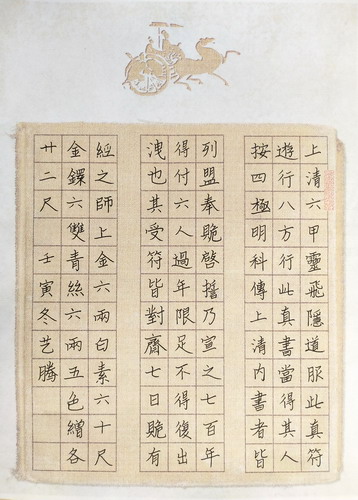 上清六甲靈飛隱道服此真符
遊行八方行此真書當得其人
按四極明科傳上清内書者皆
列盟奉贶啓誓乃宣之七百年
得付六人過年限足不得復出
洩也其受符皆對齋七日贶有
經之師上金六兩白素六十尺
金鐶六雙青絲六兩五色繒各
廿二尺 壬寅冬艺腾